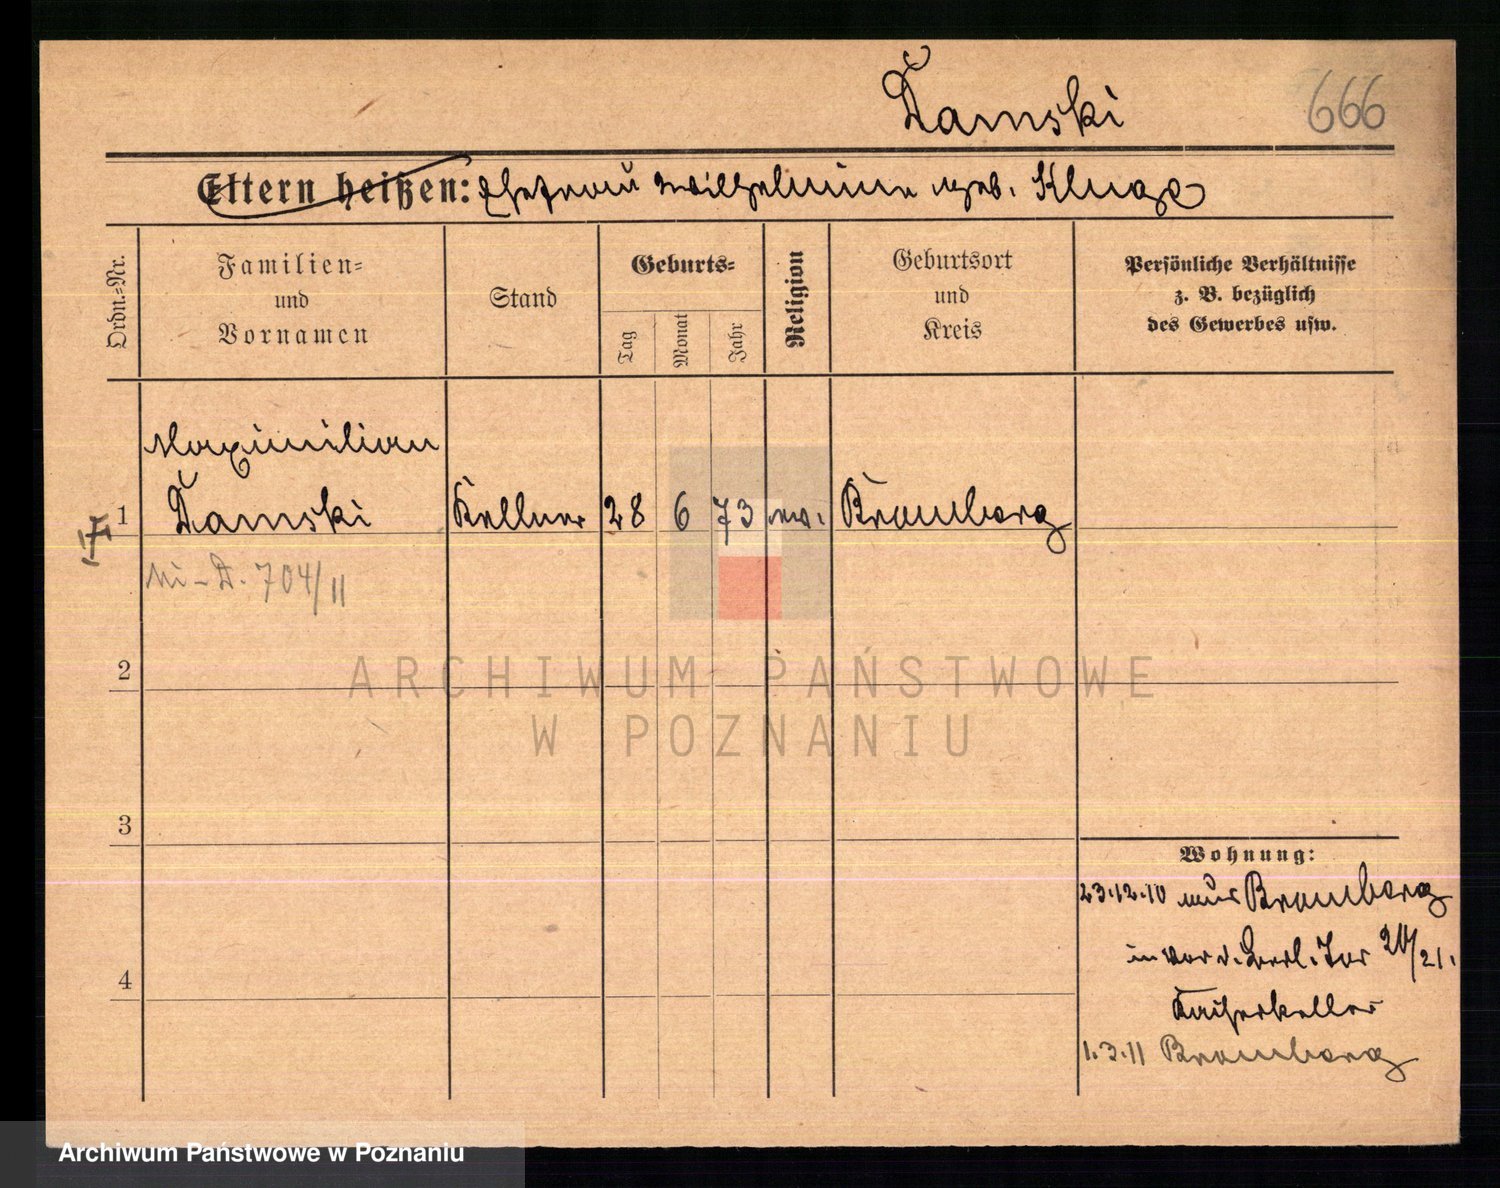 Damski
666
Eltern heißen: Ehefrau Wilhelmine geb. Kluge
Ordn.=Nr.
Familien=
und
Vornamen
Stand
Geburts=
Tag
Monat
Jahr
Religion
Geburtsort
und
Kreis
Persönliche Verhältnisse
z. B. bezüglich
des Gewerbes usw.
Maximilian
1 Damski Kellner 28 6 73 ev. Bromberg
704/11
2
3
4
Wohnung:
23.12.10 aus Bromberg
in vor d. Berl. Tor 20/21.
Kaiserkeller
1.3.11 Bromberg
ARCHIWUM PAŃSTWOWE
W POZNANIU
Archiwum Państwowe w Poznaniu